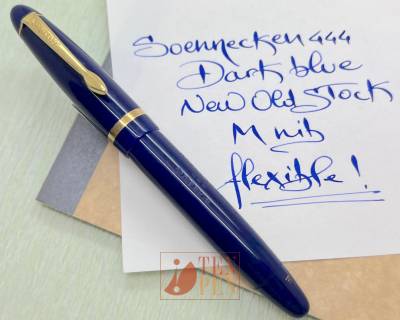 Soennecken 444
Dark blue
New Old Stock
M nib
flexible!
TEN
PEN